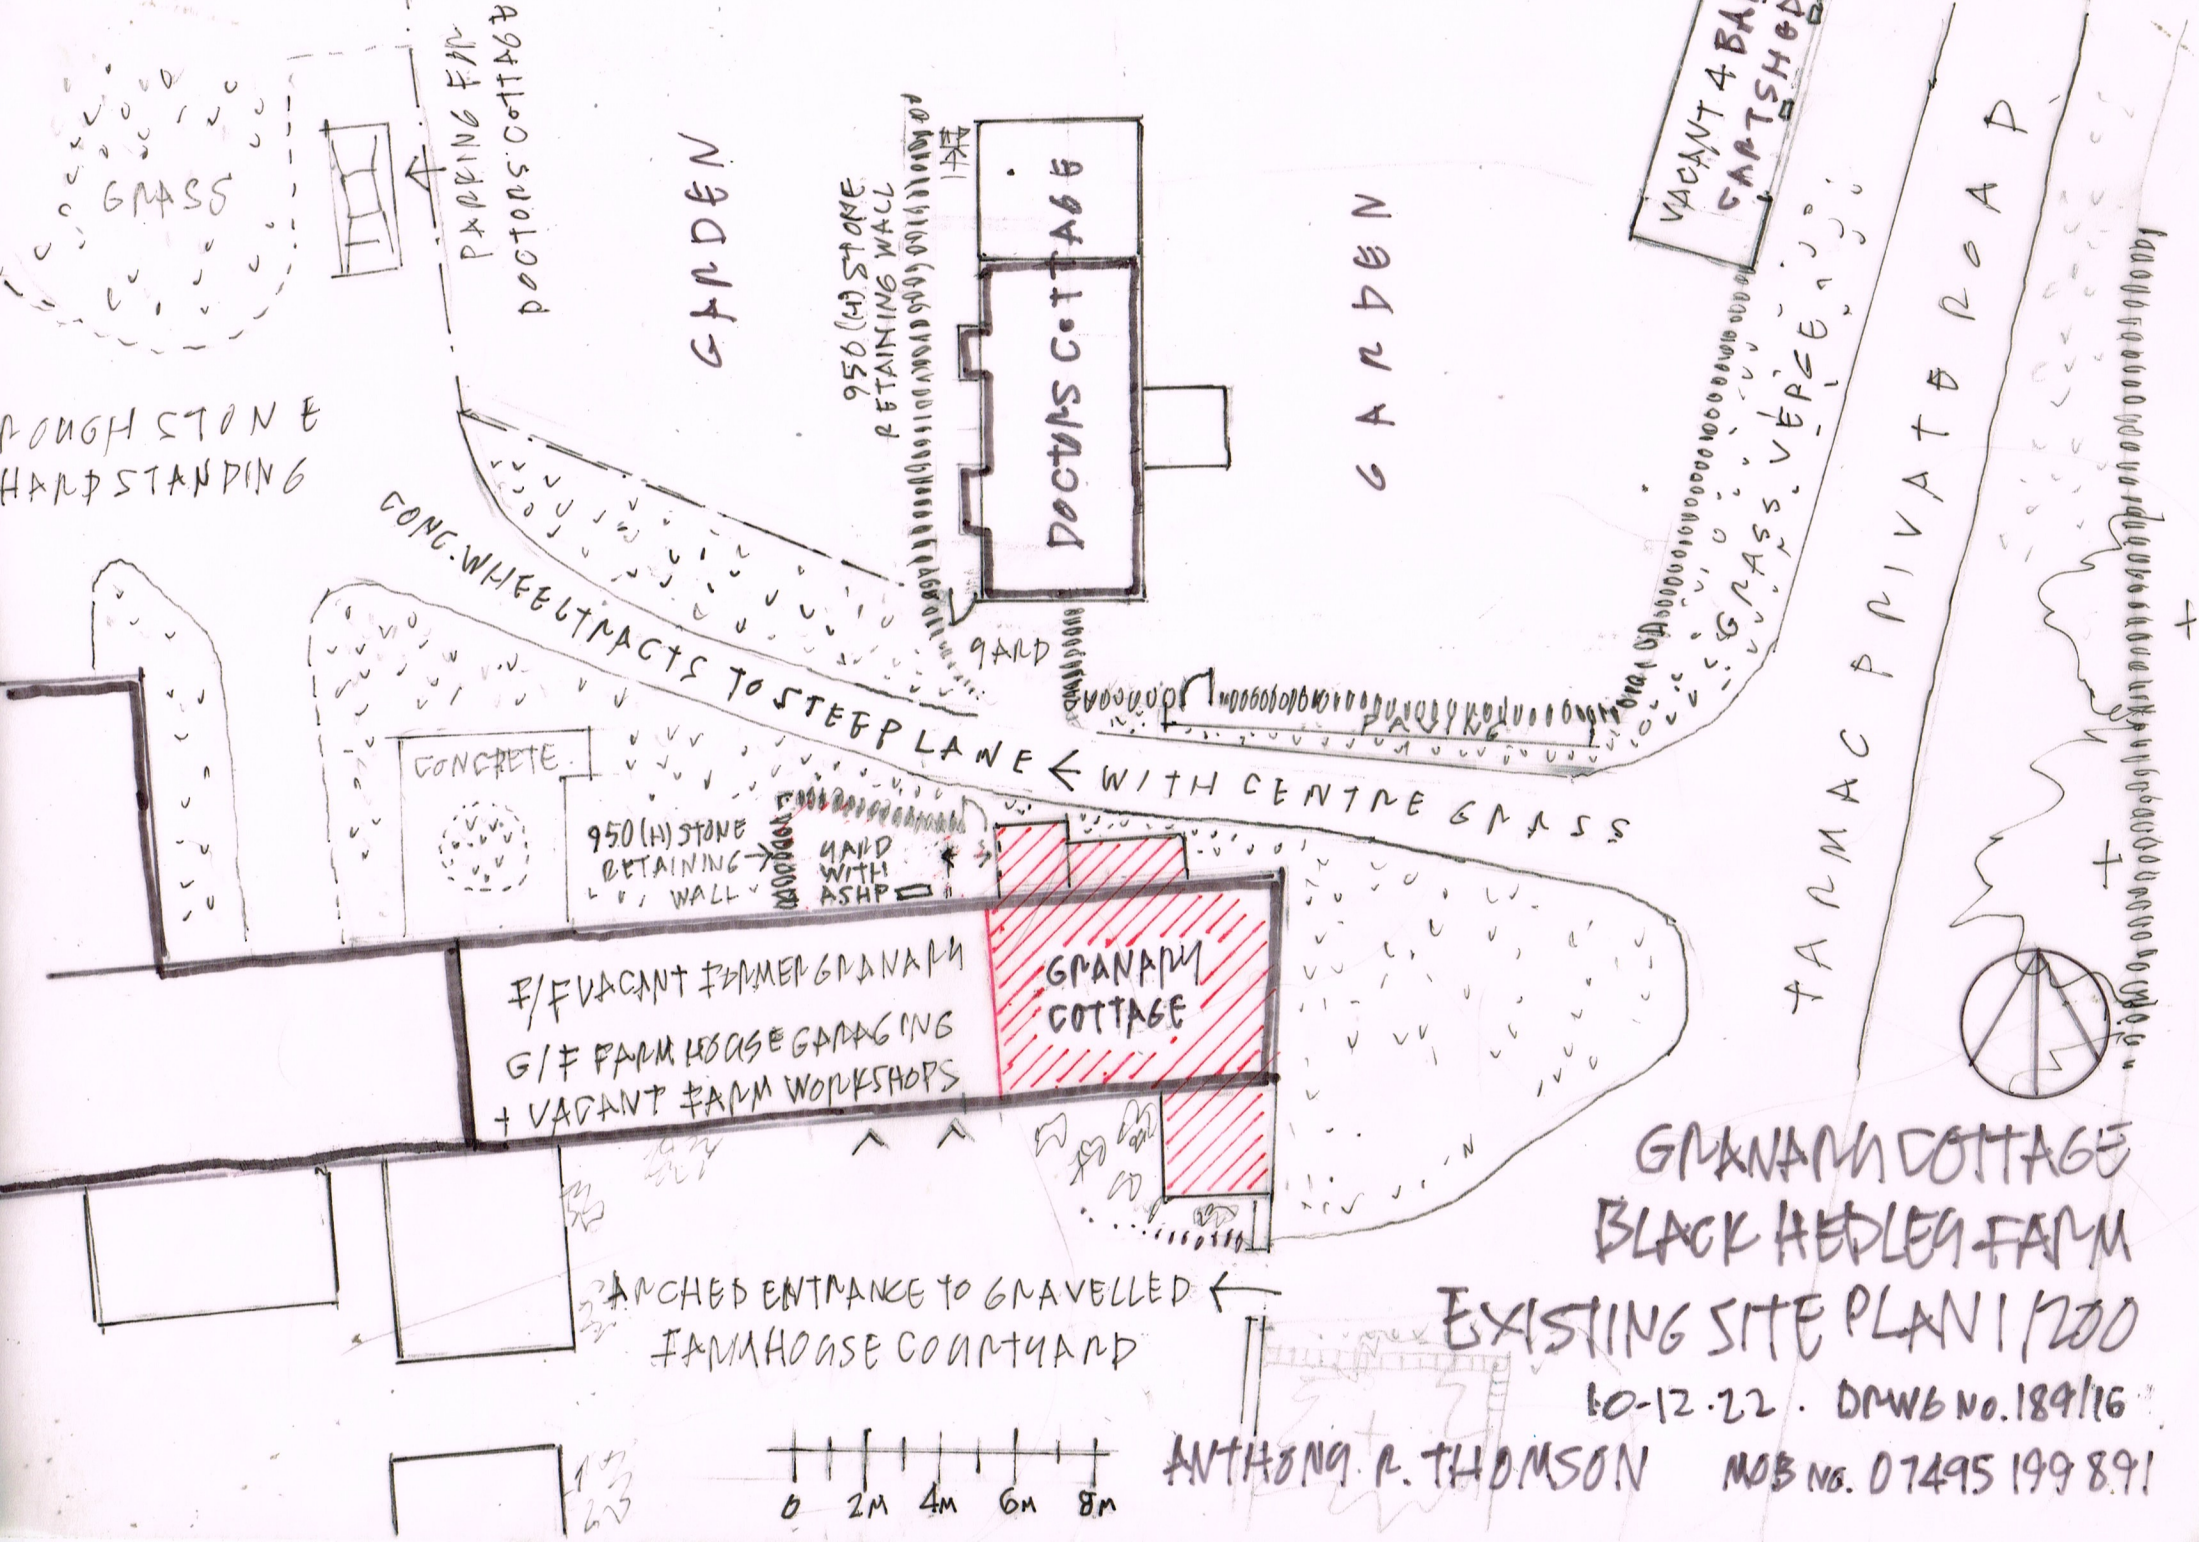 GRASS
PARKING FOR
DOCTORS COTTAGE
GARDEN
950(H) STONE
RETAINING WALL
DOCTORS COTTAGE
GARDEN
VACANT 4 BA
CARTSHED
GRASS VERGE
TARMAC PRIVATE ROAD
ROUGH STONE
HARDSTANDING
CONC. WHEELTRACTS TO STEEP LANE ← WITH CENTRE GRASS
YARD
PARKING
CONCRETE
950(H) STONE
RETAINING
WALL
YARD
WITH
ASHP
F/F VACANT FORMER GRANARY
G/F FARM HOUSE GARAGING
+ VACANT FARM WORKSHOPS
GRANARY
COTTAGE
ARCHED ENTRANCE TO GRAVELLED ←
FARMHOUSE COURTYARD
GRANARY COTTAGE
BLACK HEDLEY FARM
EXISTING SITE PLAN 1/200
10-12.22. DRWG No. 189/16
ANTHONY. R. THOMSON MOB No. 07495 199 891
0 2M 4M 6M 8M